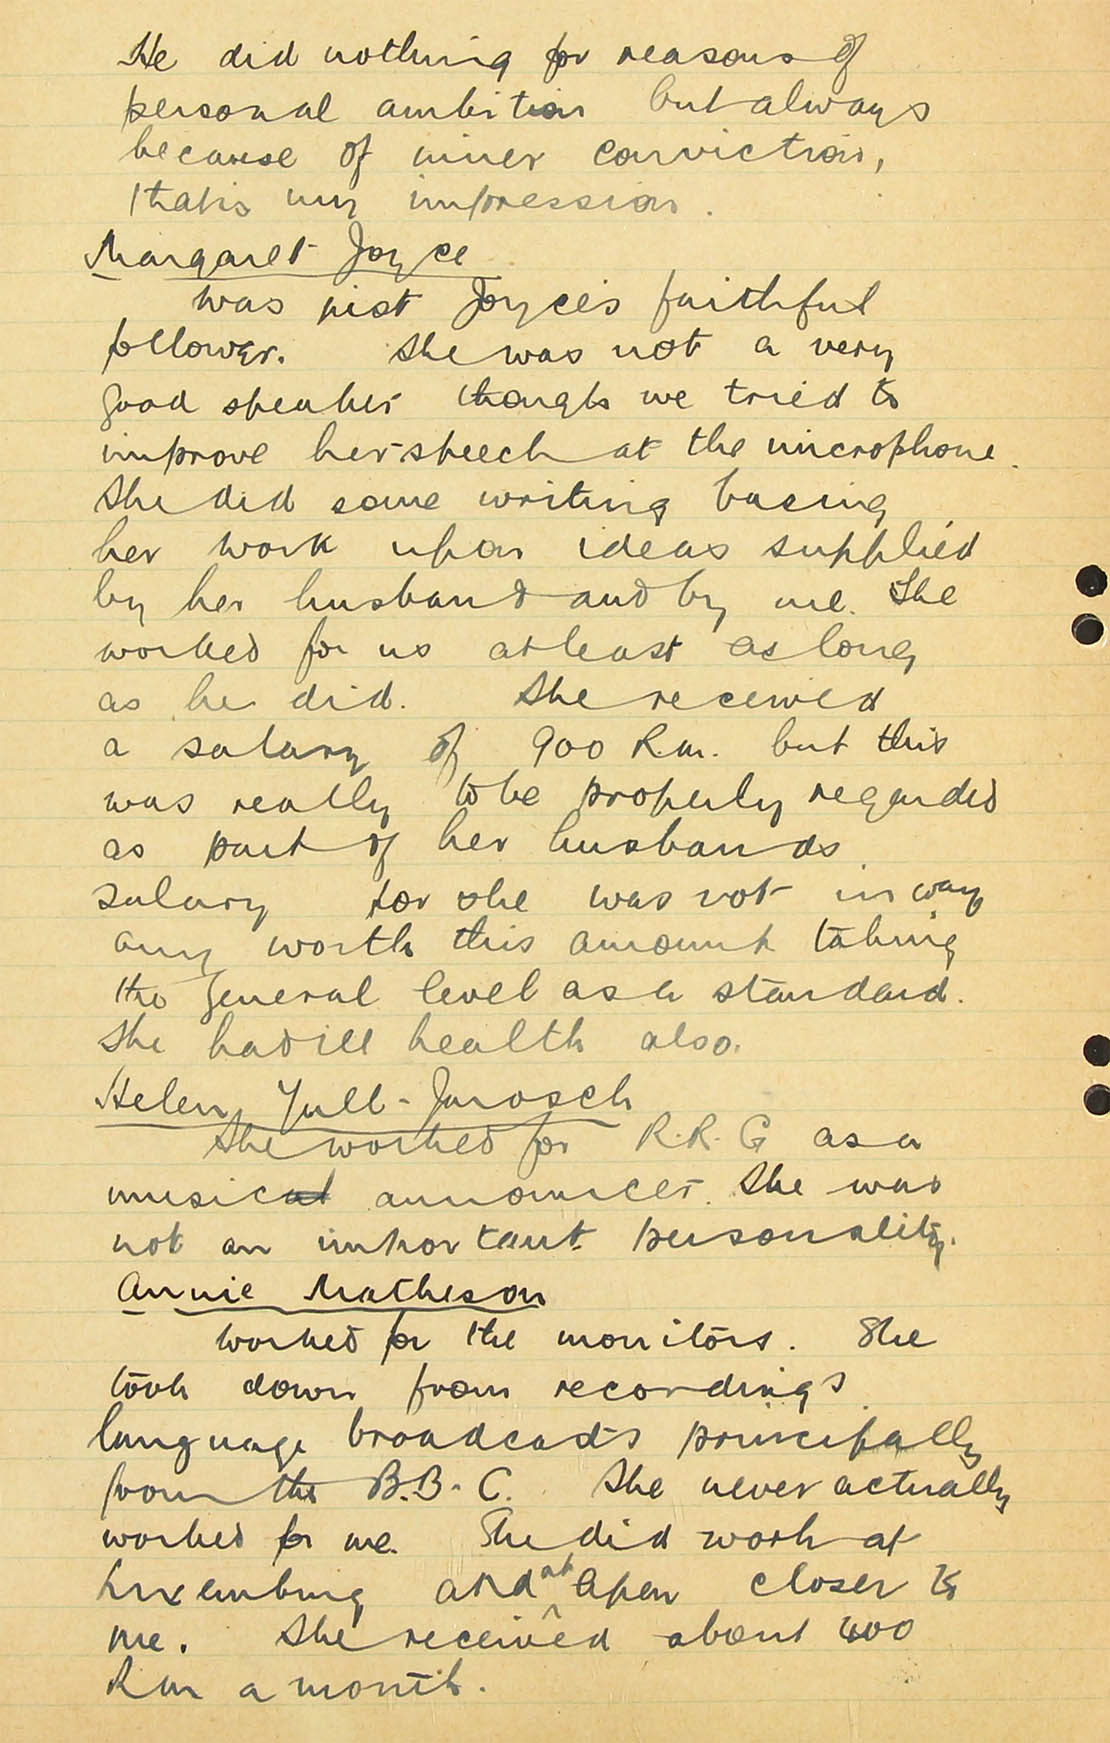 He did nothing for reasons of
personal ambition but always
because of inner conviction,
that is my impression.
Margaret Joyce
was just Joyce's faithful
follower. She was not a very
good speaker though we tried to
improve her speech at the microphone.
She did some writing basing
her work upon ideas supplied
by her husband and by me. She
worked for us at least as long
as he did. She received
a salary of 900 R.m. but this
was really to be properly regarded
as part of her husbands
salary for she was not in way
any worth this amount taking
the general level as a standard.
She had ill health also.
Helen Yull-Jurosch
She worked for R.R.G as a
musical announcer. She was
not an important personality.
Annie Matheson
worked for the monitors. She
took down from recordings
language broadcasts principally
from the B.B.C. She never actually
worked for me. She did work at
Luxemburg and at Apen closer to
me. She received about 400
R m a month.